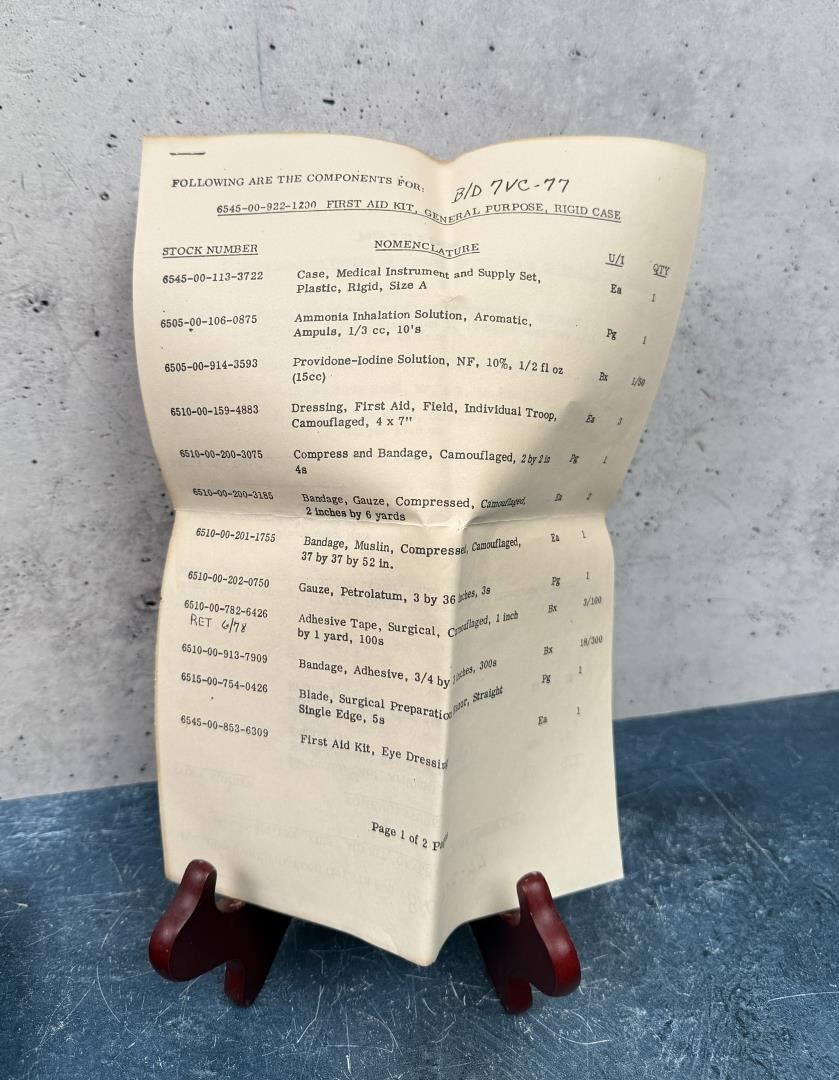 FOLLOWING ARE THE COMPONENTS FOR: B/D 7VC-77
6545-00-922-1200 FIRST AID KIT, GENERAL PURPOSE, RIGID CASE
STOCK NUMBER NOMENCLATURE U/I QTY
6545-00-113-3722 Case, Medical Instrument and Supply Set, Ea 1
Plastic, Rigid, Size A
6505-00-106-0875 Ammonia Inhalation Solution, Aromatic, Pg 1
Ampuls, 1/3 cc, 10's
6505-00-914-3593 Providone-Iodine Solution, NF, 10%, 1/2 fl oz Bx 1/50
(15cc)
6510-00-159-4883 Dressing, First Aid, Field, Individual Troop, Ea 3
Camouflaged, 4 x 7"
6510-00-200-3075 Compress and Bandage, Camouflaged, 2 by 2 in Pg 1
4s
6510-00-200-3185 Bandage, Gauze, Compressed, Camouflaged, Ea 2
2 inches by 6 yards
6510-00-201-1755 Bandage, Muslin, Compressed, Camouflaged, Ea 1
37 by 37 by 52 in.
6510-00-202-0750 Gauze, Petrolatum, 3 by 36 inches, 3s Pg 1
6510-00-782-6426 Adhesive Tape, Surgical, Camouflaged, 1 inch Bx 3/100
RET 6/78 by 1 yard, 100s
6510-00-913-7909 Bandage, Adhesive, 3/4 by inches, 300s Bx 18/300
6515-00-754-0426 Blade, Surgical Preparation Razor, Straight Pg 1
Single Edge, 5s
6545-00-853-6309 First Aid Kit, Eye Dressing Ea 1
Page 1 of 2